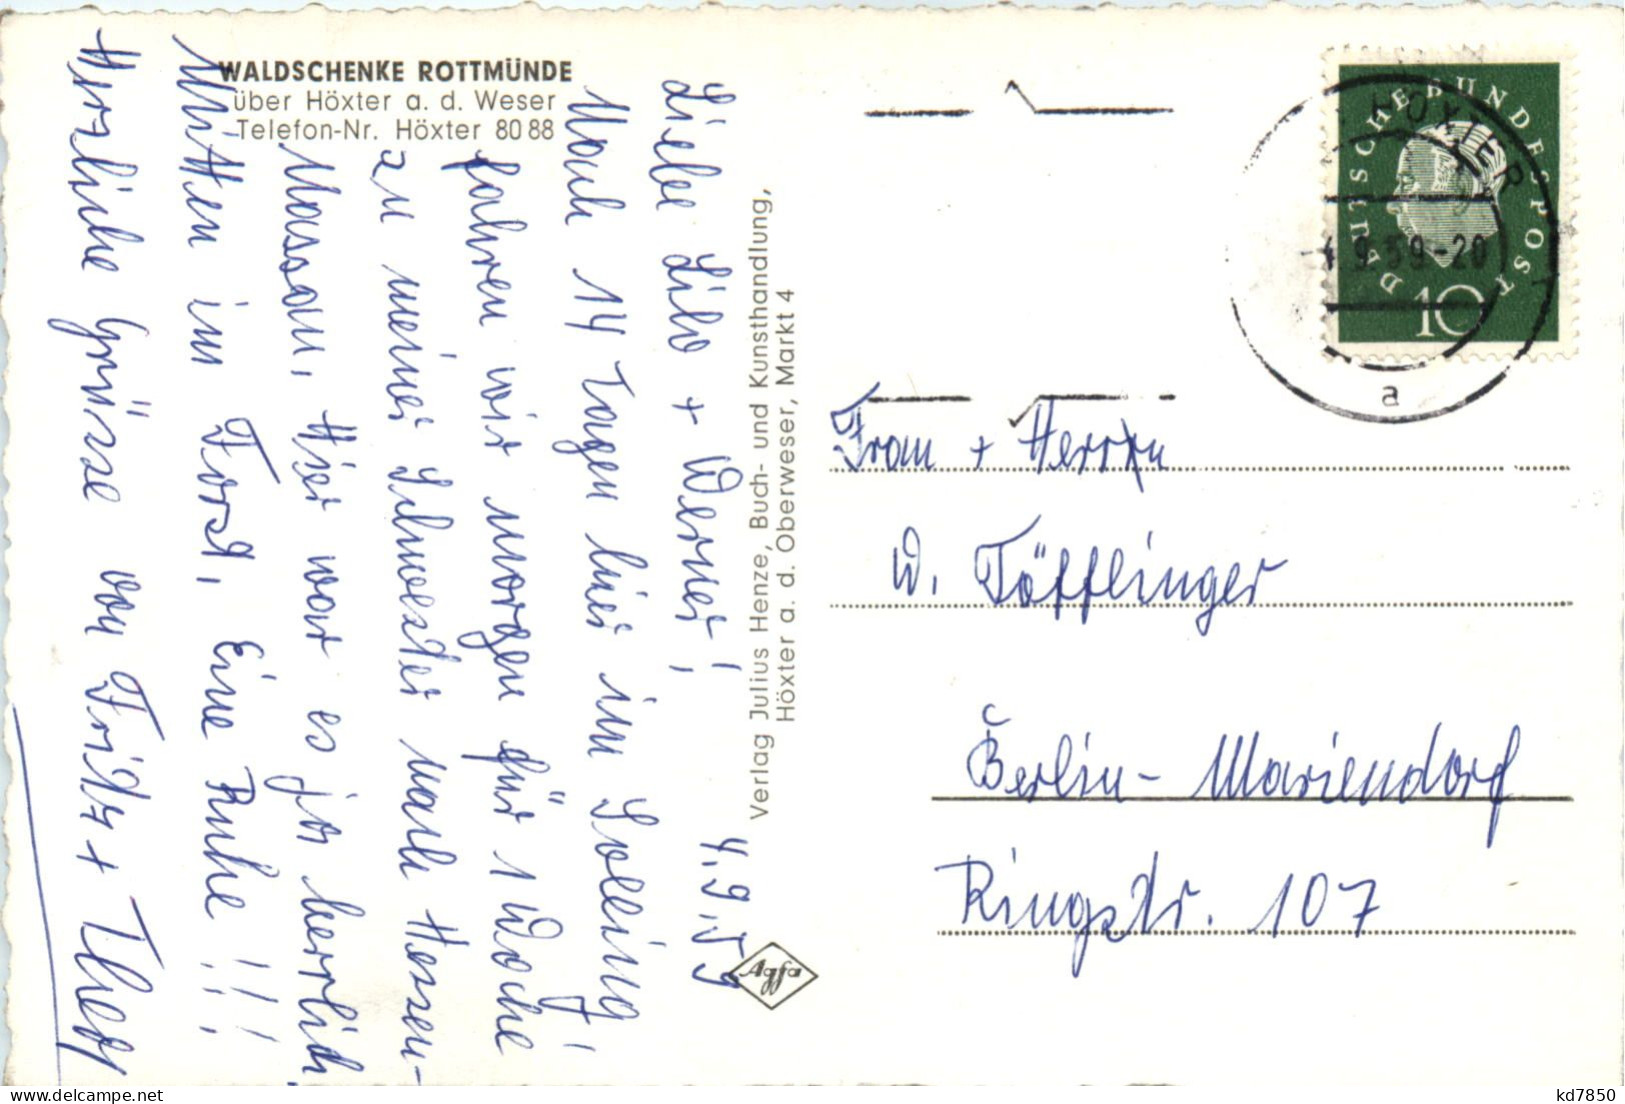 WALDSCHENKE ROTTMÜNDE
über Höxter a. d. Weser
Telefon-Nr. Höxter 80 88
4.9.59
Liebe Lilo + Werner!
Nach 14 Tagen hier im Solling
fahren wir morgen für 1 Woche
zu meiner Schwester nach Hessen-
Nassau. Hier war es ja herrlich
Mitten im Forst. Eine Ruhe!!!
Herzliche Grüsse von Fritz +
Verlag Julius Henze, Buch- und Kunsthandlung,
Höxter a. d. Oberweser, Markt 4
Agfa
DEUTSCHE BUNDESPOST
10
HÖXTER
4.9.59-20
a
Frau + Herrn
W. Töfflinger
Berlin-Mariendorf
Ringstr. 107
kd7850